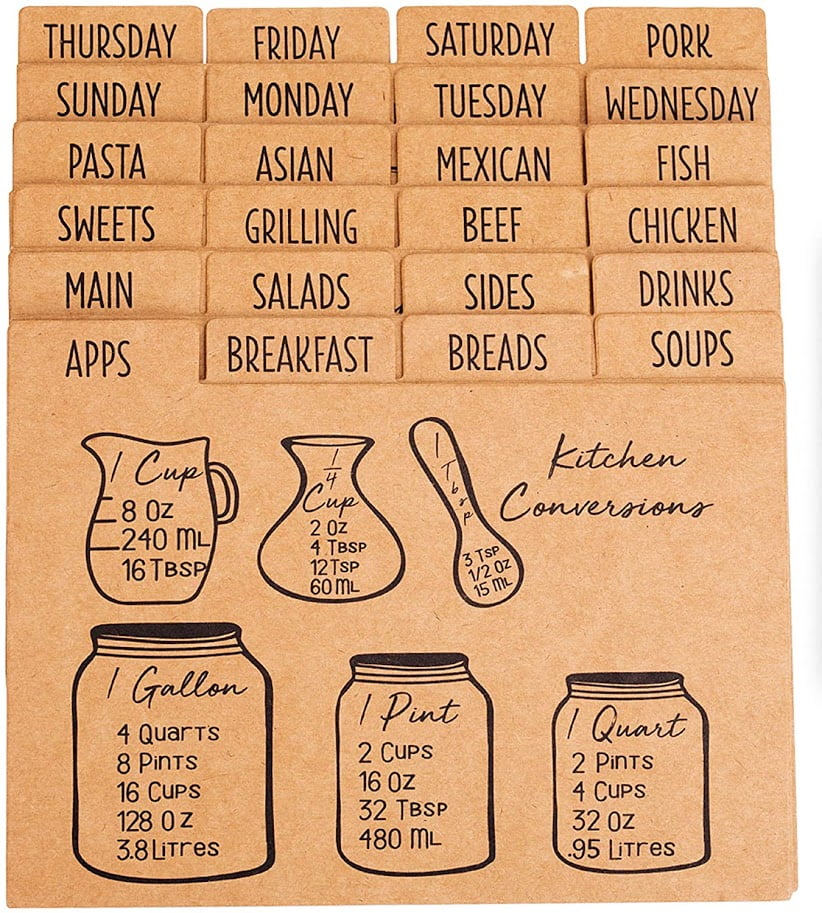 THURSDAY FRIDAY SATURDAY PORK
SUNDAY MONDAY TUESDAY WEDNESDAY
PASTA ASIAN MEXICAN FISH
SWEETS GRILLING BEEF CHICKEN
MAIN SALADS SIDES DRINKS
APPS BREAKFAST BREADS SOUPS
1 Cup
8 Oz
240 mL
16 Tbsp
1/4
Cup
2 Oz
4 Tbsp
12 Tsp
60 mL
1 Tbsp
3 Tsp
1/2 Oz
15 mL
Kitchen
Conversions
1 Gallon
4 Quarts
8 Pints
16 Cups
128 Oz
3.8 Litres
1 Pint
2 Cups
16 Oz
32 Tbsp
480 mL
1 Quart
2 Pints
4 Cups
32 Oz
.95 Litres